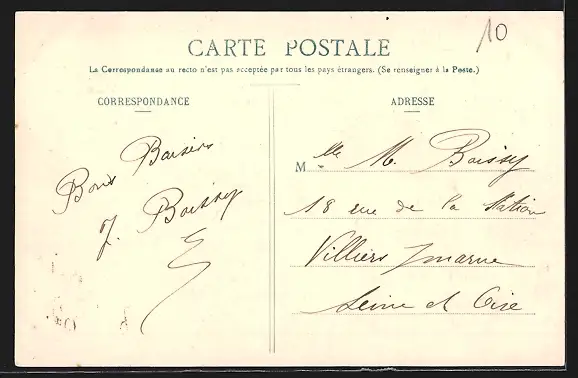 10
CARTE POSTALE
La Correspondance au recto n'est pas acceptée par tous les pays étrangers. (Se renseigner à la Poste.)
CORRESPONDANCE
Bons Baisers
J. Boissy
ADRESSE
Mlle M. Boissy
18 rue de la Station
Villiers s/marne
Seine et Oise